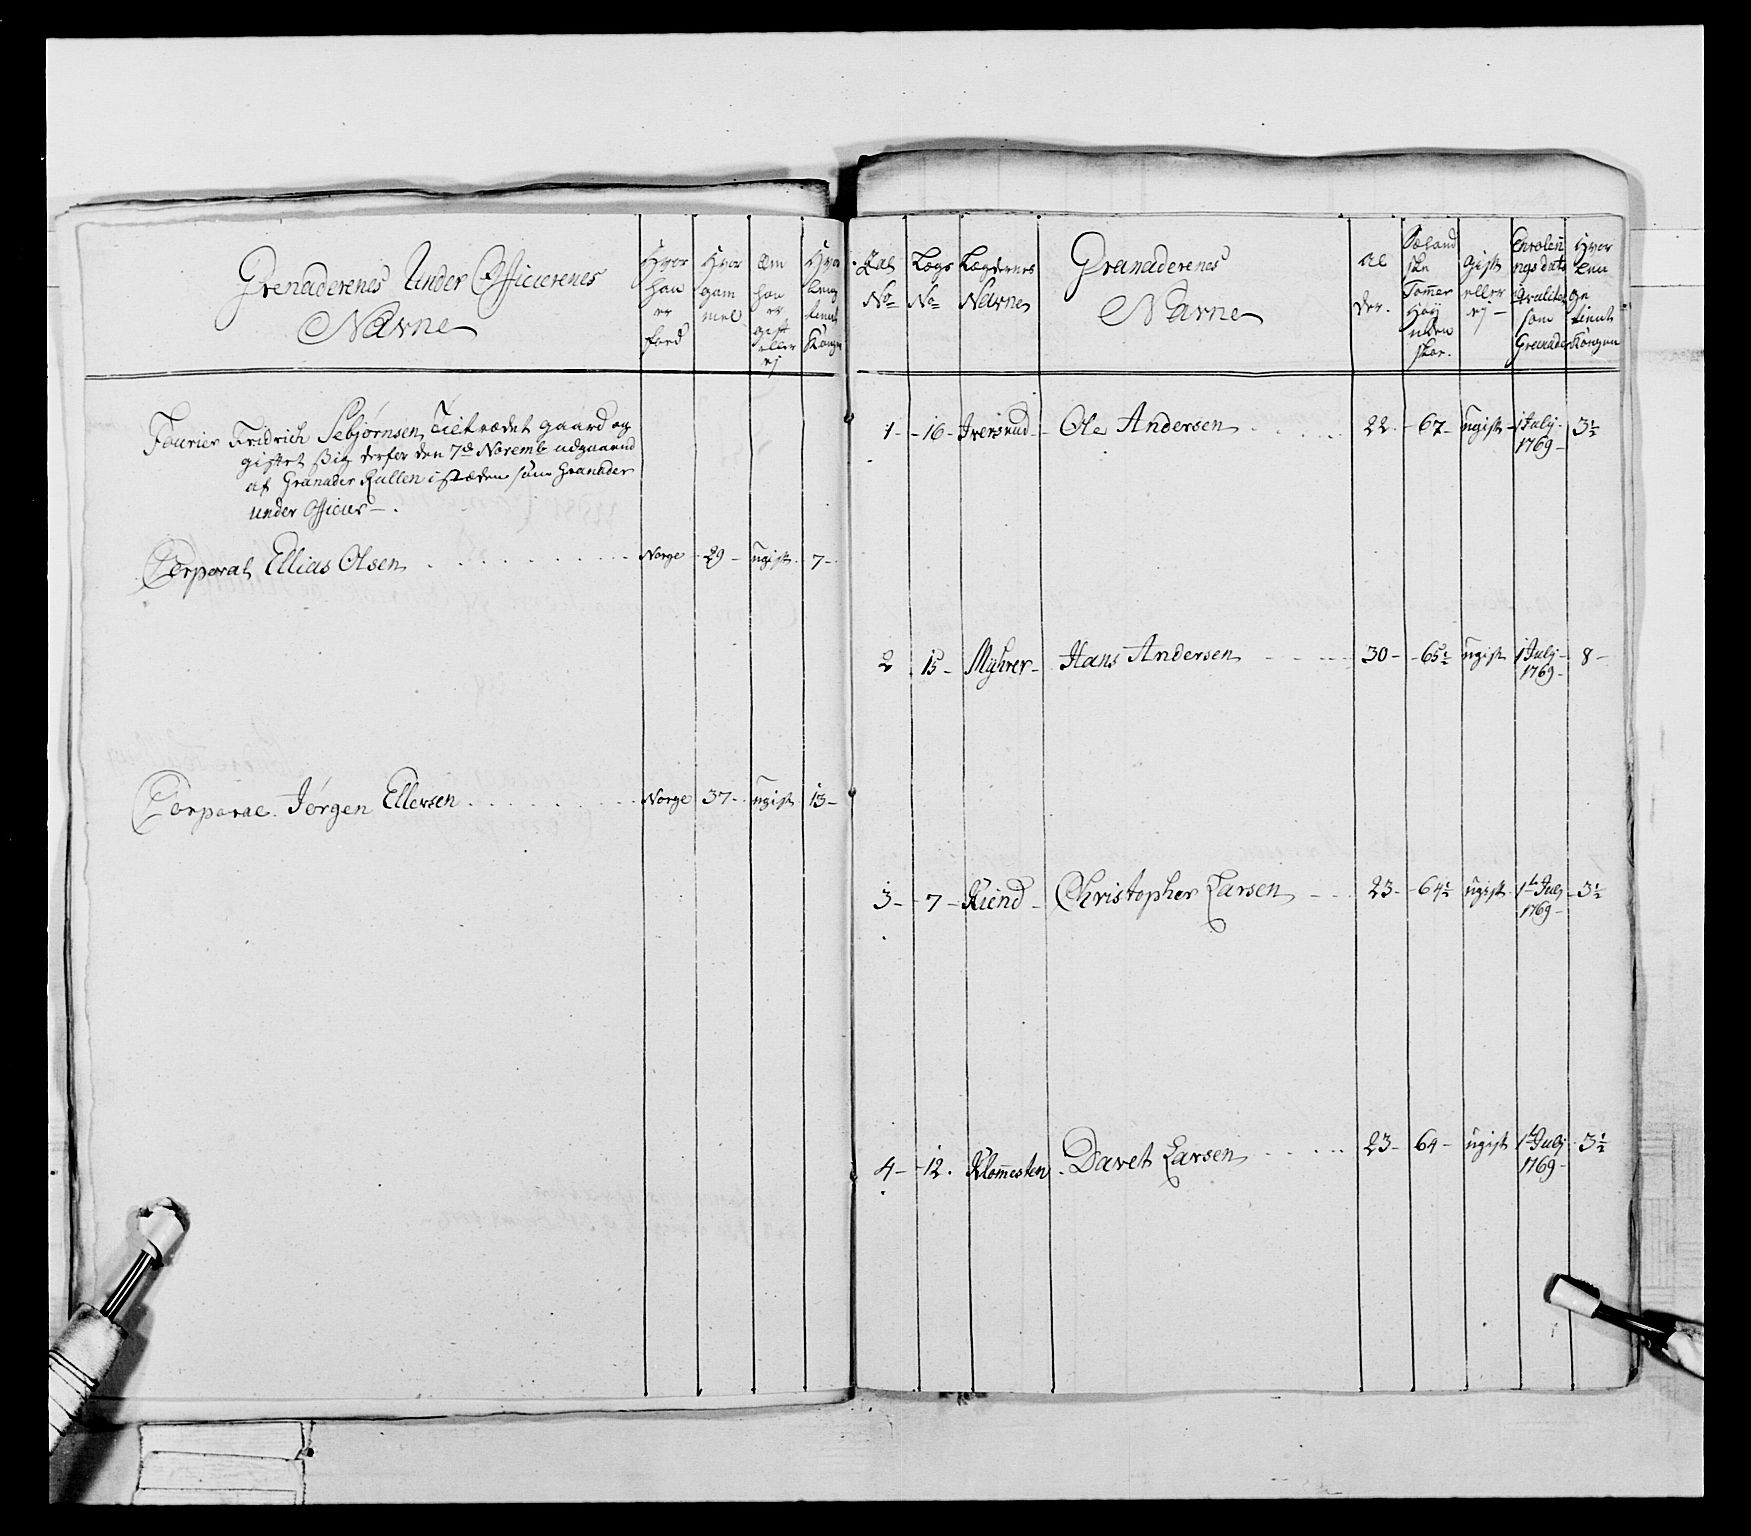 Grenaderenes Under Officerenes
Navne
Hvor
han
er
fød
Hvor
gam
mel
Om
han
er
gift
eller
ej
Hvor
leng
tient
Kongen
Fourier Fridrich Sebjørnsen, Tiltrædet gaard og
giftet sig derfor den 7de Novemb udgaaend
af Granader Rullen i stæden som Granader
under Officer –
Corporal Ellias Olsen Norge 29 – ugift 7 –
Corporal Jørgen Ellevsen Norge 37 – ugift 13 –
No
Lægs
No
Lægdernes
Navne
Granaderenes
Navne
Al
der.
Tommer
Høy
uden
skoe.
gift
eller
ej –
som
Granader
Hvor
læn
ge
tient
Kongen
1 – 16 – Iversrud – Ole Andersen 22 – 67 – ugift – 1 Julj
1769 – 3½
2 15 – Myhrer – Hans Andersen 30 – 65½ ugift 1 Julj –
1769 – 8 –
3 – 7 – Kiend – Christopher Larsen 23 – 64½ ugift 1te Julj
1769 – 3½
4 – 12. Klomesten Davet Larsen 23 – 64 – ugift 1te Julj
1769 – 3½